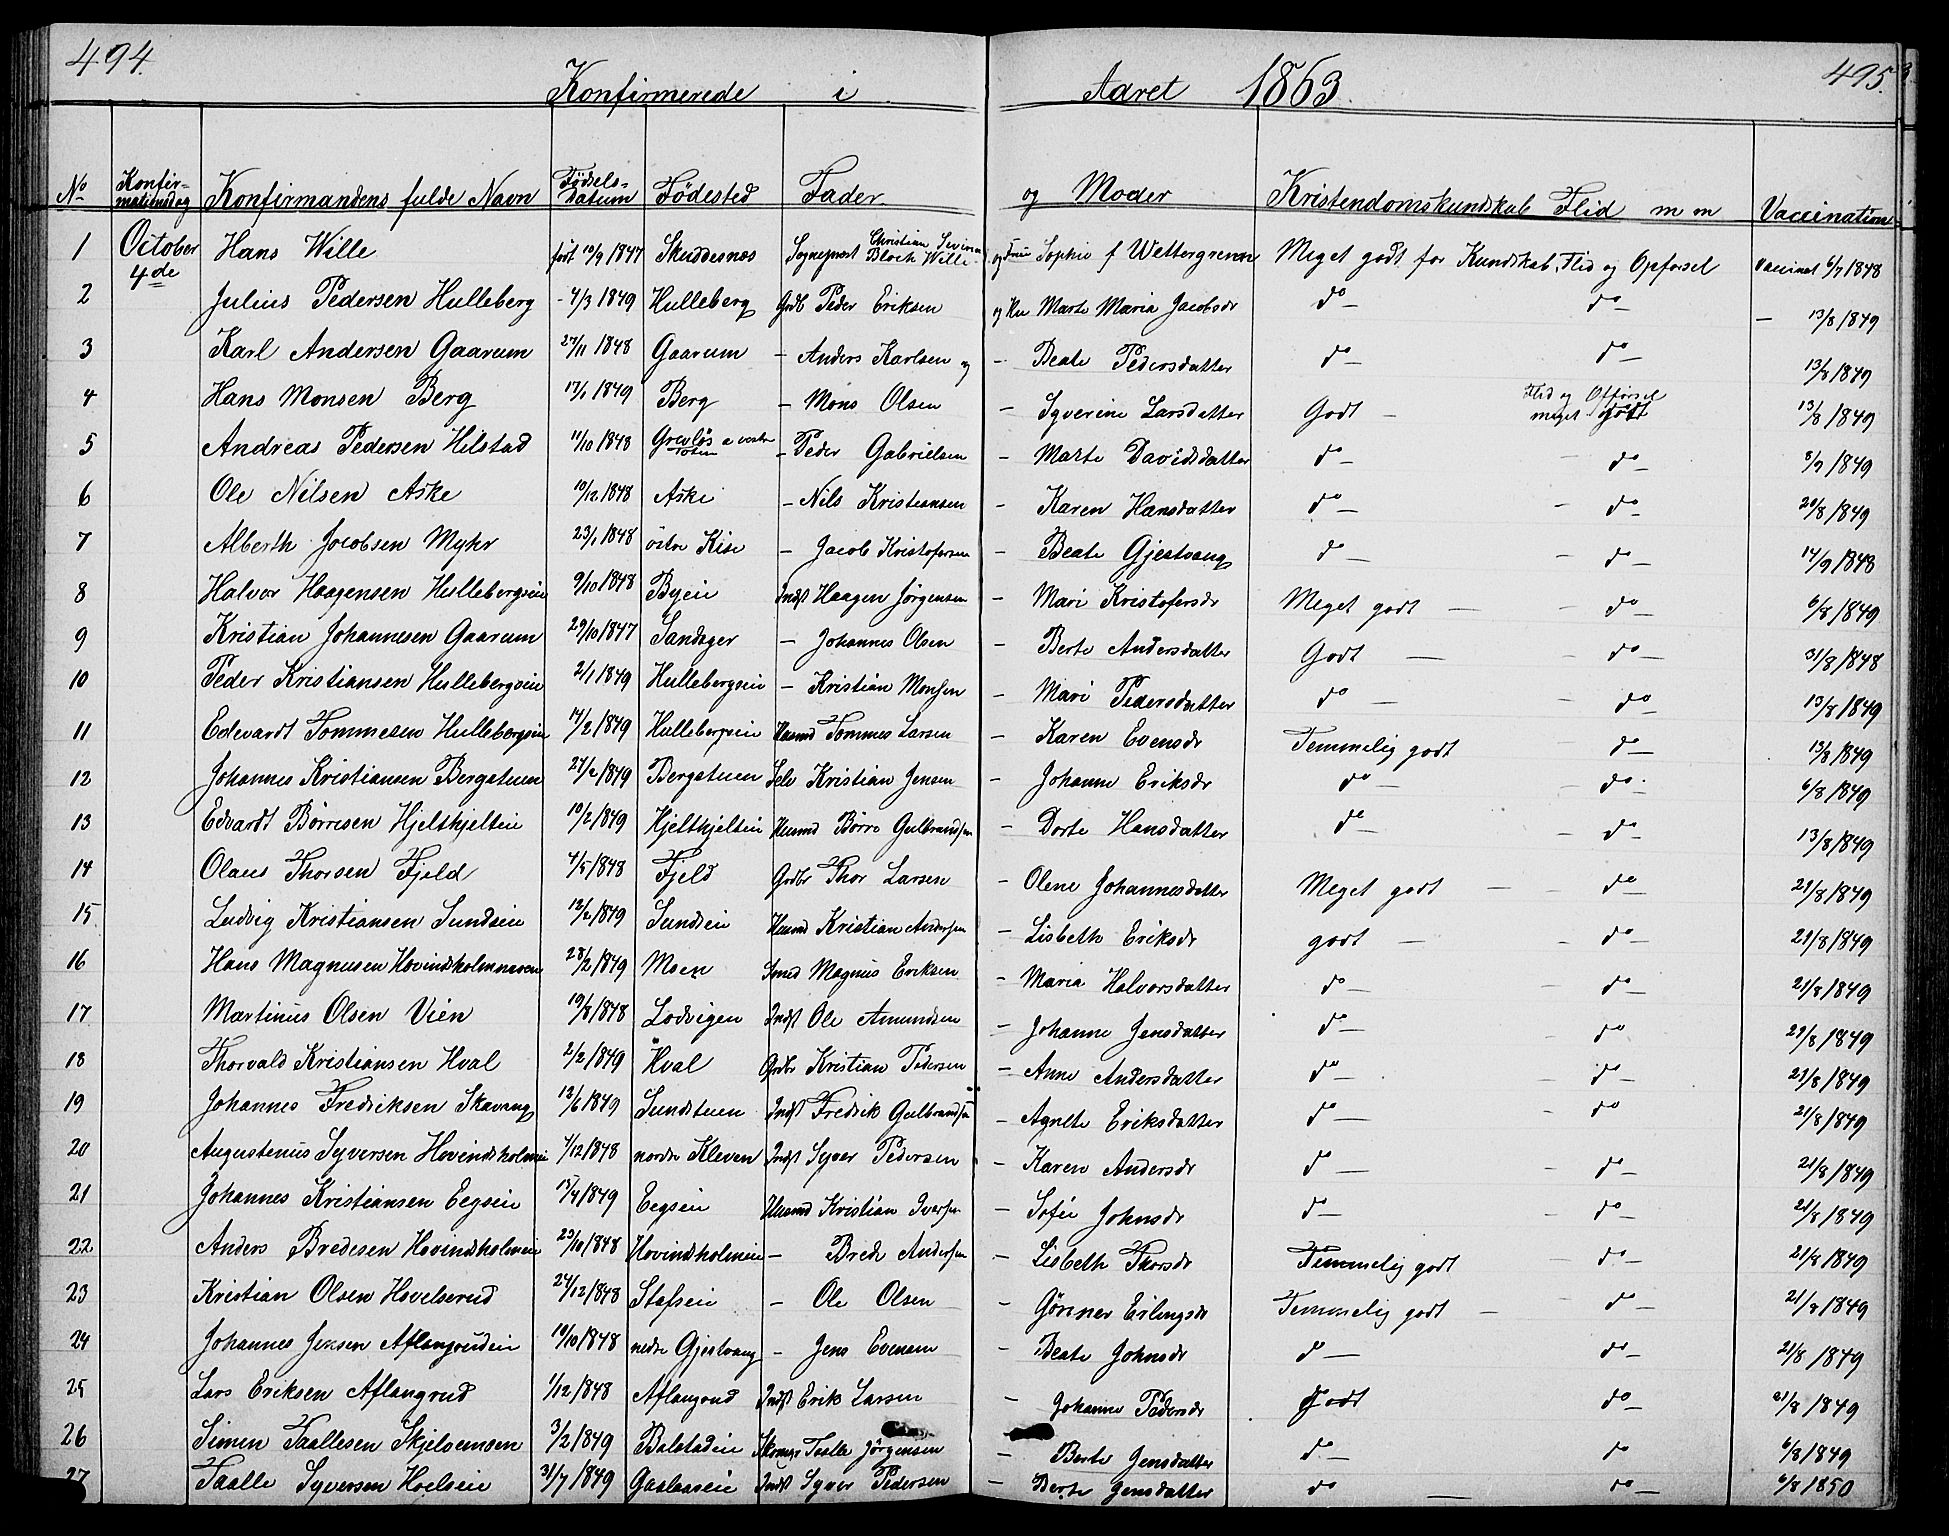 494. 495.
Konfirmerede i Aaret 1863.
No Konfirmationsdag Konfirmandens fulde Navn Fødsels-Datum Fødested Fader og Moder Kristendomskundskab Flid m m Vaccination
1 October 4de Hans Wille født 1847 Skuddesnæs Sogneprest Christian Bloch Wille og Frue Sophie f Wettergreen Meget godt for Kundskab, Flid og Opførsel Vaccineret 6/7 1848
2 Julius Pedersen Hulleberg - 4/3 1849 Hulleberg Grdb Peder Eriksen og Ku Marte Maria Jacobsdr do - do - - 13/8 1849
3 Karl Andersen Gaarum 27/11 1848 Gaarum - Anders Karlsen og - Beate Pedersdatter do - do - 13/8 1849
4 Hans Monsen Berg 17/1 1849 Berg - Mons Olsen - Syverine Larsdatter Godt - Flid og Opførsel meget godt 13/8 1849
5 Andreas Pedersen Hilstad 11/10 1848 Toten - Peder Gabrielsen - Marte Davidsdatter do - - do - 1849
6 Ole Nilsen Aske 10/12 1848 Aske - Nils Kristiansen - Karen Hansdatter do - - do - 20/8 1849
7 Alberth Jacobsen Myhr 23/1 1848 østre Kise - Jacob Kristofersen - Beate Gjestvang do - - do - 14/9 1848
8 Halvor Haagensen Hullebergseie 9/10 1848 Byeie Indst Haagen Jørgensen - Mari Kristofersdr Meget godt - - do - 6/8 1849
9 Kristian Johannesen Gaarum 29/10 1847 Sandager - Johannes Olsen - Berte Andersdatter Godt - - do - 31/8 1848
10 Peder Kristiansen Hullebergseie 2/1 1849 Hullebergseie - Kristian Monsen - Mari Pedersdatter do - - do 13/8 1849
11 Edevardt Tommesen Hullebergseie 14/2 1849 Hullebergseie Husmd Tommes Larsen - Karen Evensdr Temmelig godt - do - 13/8 1849
12 Johannes Kristiansen Bergstuen 27/2 1849 Bergstuen Selv Kristian Jensen - Johanne Eriksdr do - - do - 6/8 1849
13 Edvardt Børresen Hjelthjelteie 10/2 1849 Hjelthjelteie Husmd Børre Gulbrandsen - Dorte Hansdatter do - - do - 13/8 1849
14 Olaus Thorsen Fjeld 4/5 1848 Fjeld Grdbr Thor Larsen - Olene Johannesdatter Meget godt - - do 21/8 1849
15 Ludvig Kristiansen Sundseie 12/2 1849 Sundseie Husmd Kristian Andersen - Lisbeth Eriksdr godt - - do - 21/8 1849
16 Hans Magnusen 28/2 1849 Moen Smed Magnus Eriksen - Maria Halvorsdatter do - - do - 21/8 1849
17 Martinus Olsen Vien 19/8 1848 Lodvigen Indst Ole Amundsen - Johanne Jensdatter do - - do 21/8 1849
18 Thorvald Kristiansen Hval 2/2 1849 Hval Grdbr Kristian Pedersen - Anne Andersdatter do - - do - 21/8 1849
19 Johannes Fredriksen Skavang 12/6 1849 Sundstuen Indst Fredrik Gulbrandsen - Agnete Eriksdatter do - - do 21/8 1849
20 Augustenius Syversen Hovindsholmeie 4/12 1848 nordre Kleven Indst Syver Pedersen - Karen Andersdr do - - do - 21/8 1849
21 Johannes Kristiansen Eegseie 15/4 1849 Eegseie Husmd Kristian Iversen - Sofie Johnsdr do - - do - 21/8 1849
22 Anders Bredesen Hovindsholmeie 23/10 1848 Hovindsholmeie - Brede Andersen - Lisbeth Thorsdr Temmelig godt - do - 21/8 1849
23 Kristian Olsen Hovelsrud 24/12 1848 Stafseie - Ole Olsen - Gønner Erlingsdr Temmelig godt - - do - 21/8 1849
24 Johannes Jensen Aflangrudeie 10/10 1848 nedre Gjestvang - Jens Evensen - Beate Johnsdr do - do - 21/8 1849
25 Lars Eriksen Aflangrud 1/12 1848 Aflangrud Indst Erik Larsen - Johanne Pedersdr Godt do - 21/8 1849
26 Simen Taallesen Skjelvensen 3/2 1849 Balstadeie Skomgr Taalle Jørgensen - Berte Jensdatter do - do 6/8 1849
27 Taalle Syversen Hoelseie 31/7 1849 Gaalaaseie Indst Syver Pedersen - Berte Jensdatter do - do - 6/8 1850